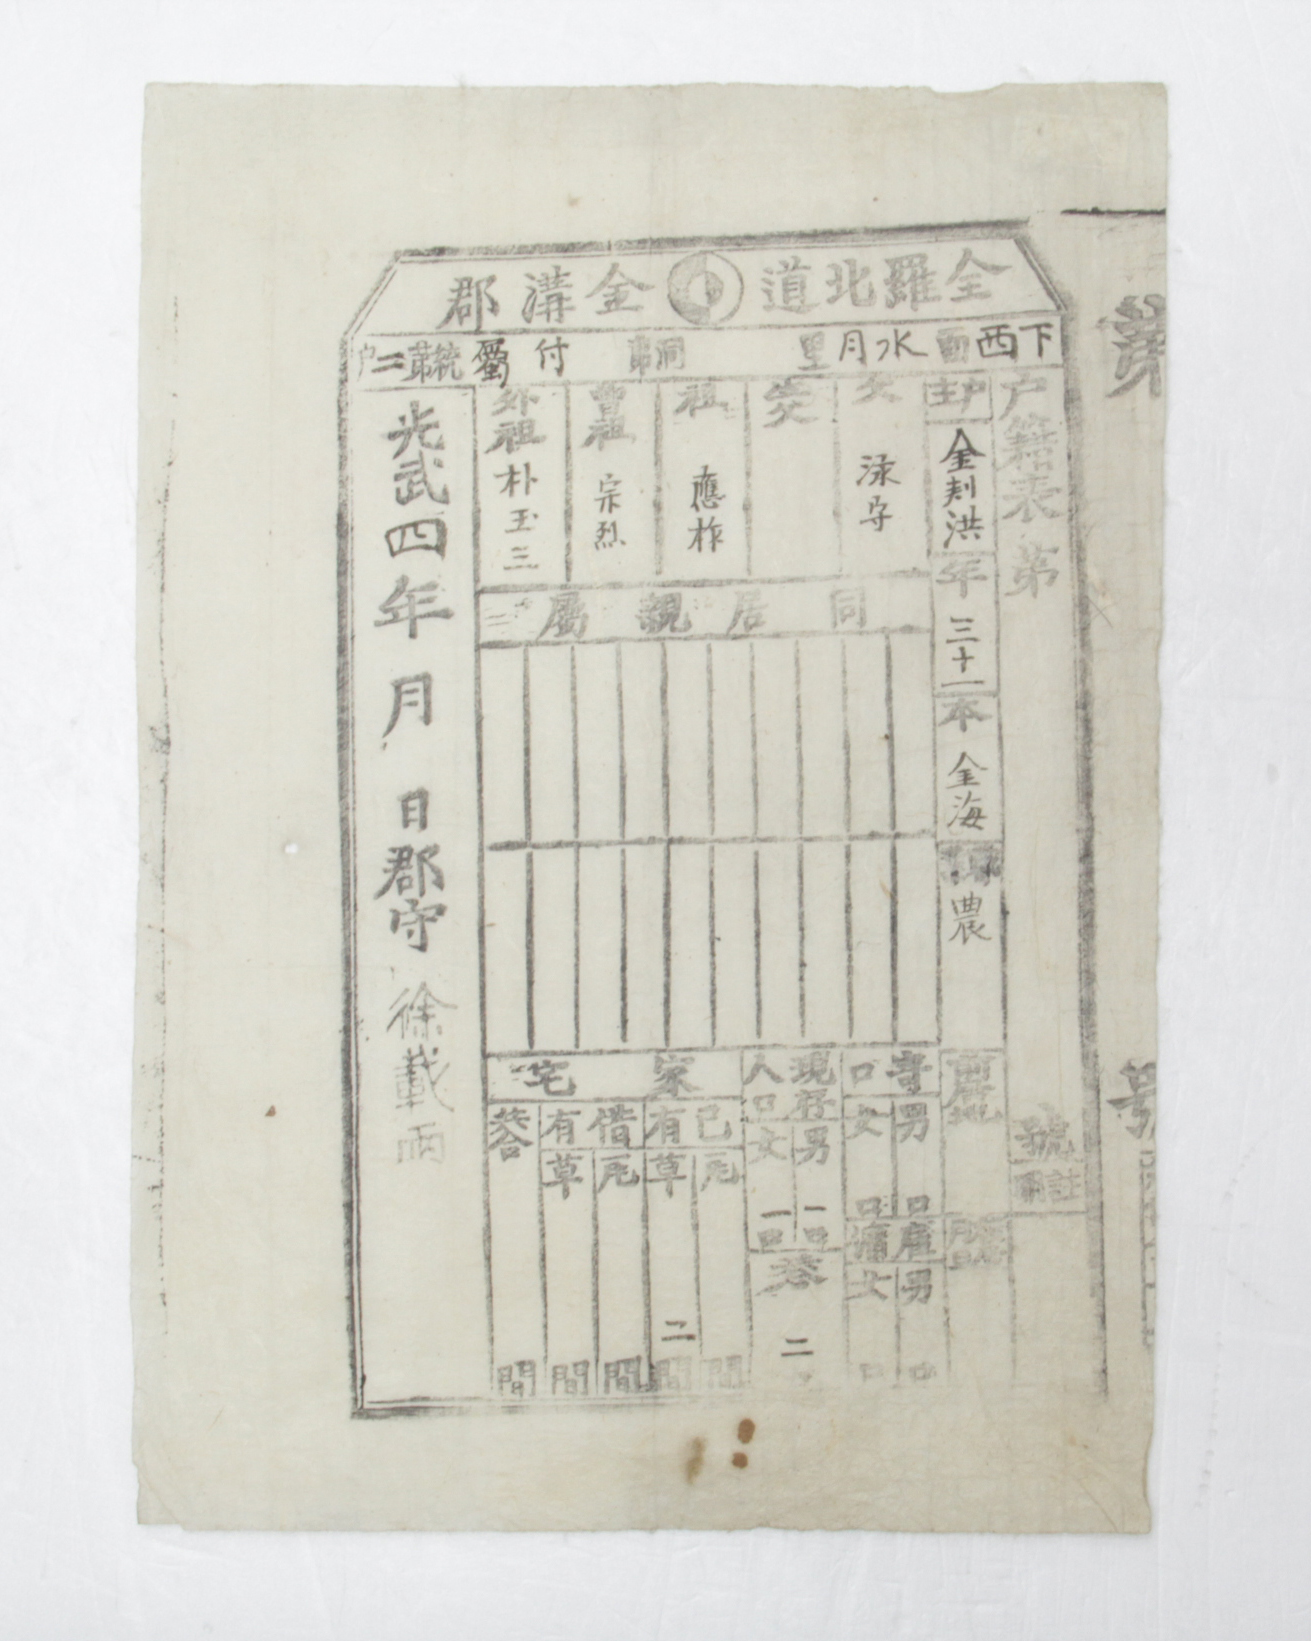 全羅北道 金溝郡
下西面 水月里 洞第 付屬 統第二戶
戶籍表 第 號
戶主 金判洪 年 三十一 本 金海 農
父 泳守
生父
祖 應柞
曾祖 宗烈
外祖 朴玉三
同居親屬
寄口 男 口 女 口
雇傭 男 口 女 口
現存人口 男 一口 女 一口
共 二
家宅
己有 瓦 間 草 二 間
借有 瓦 間 草 間
共合 間
光武四年 月 日 郡守 徐載雨
第 號